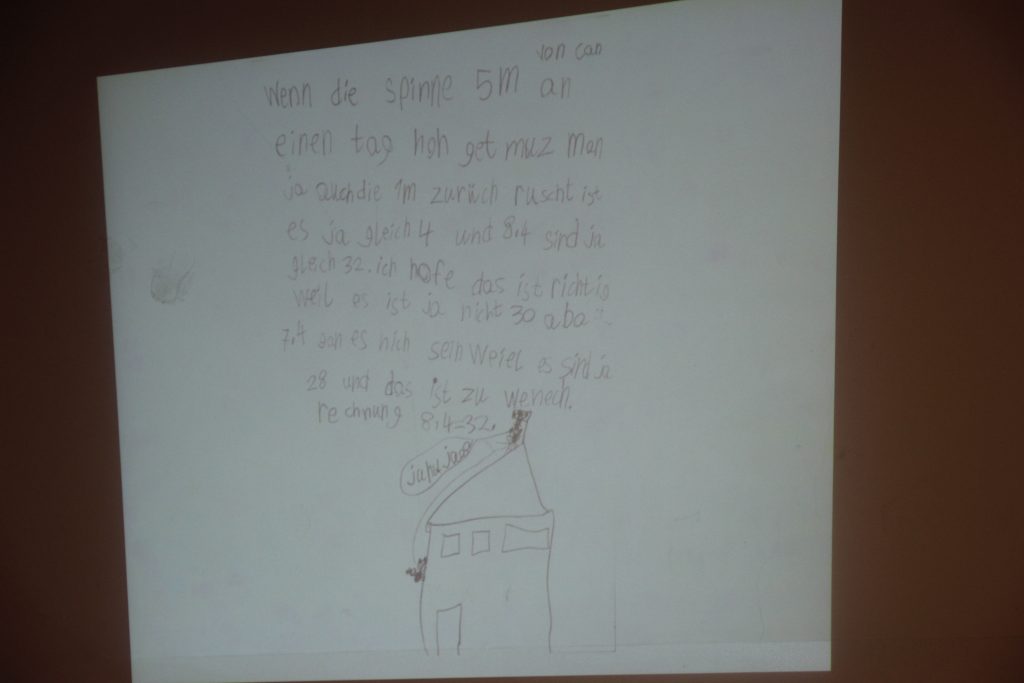 von can
Wenn die spinne 5m an
einen tag hoh get muz man
ja auch die 1m zurüch ruscht ist
es ja gleich 4 und 8.4 sind ja
gleich 32. ich hofe das ist richtig
weil es ist ja nicht 30 aba
7.4 es nich sein weiel es sind ja
28 und das ist zu wenech.
rechnung 8.4=32.